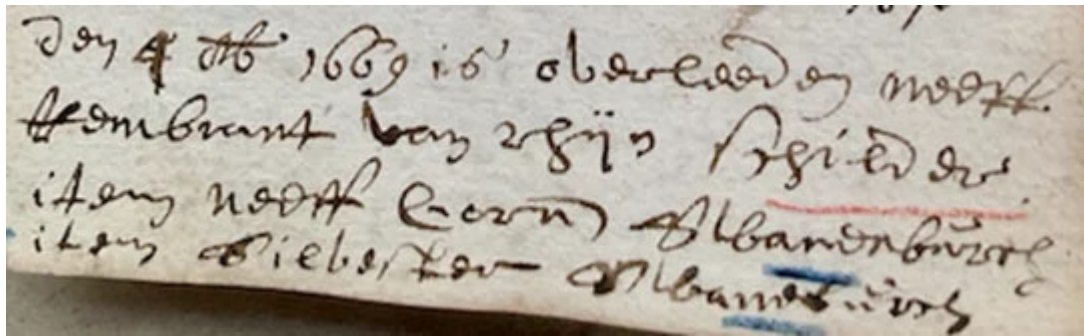 den 4 8b 1669 is overleeden neeff
Rembrant van Rhijn schilder
item neeff Corn Swanenburch
item Silvester Swanenburch